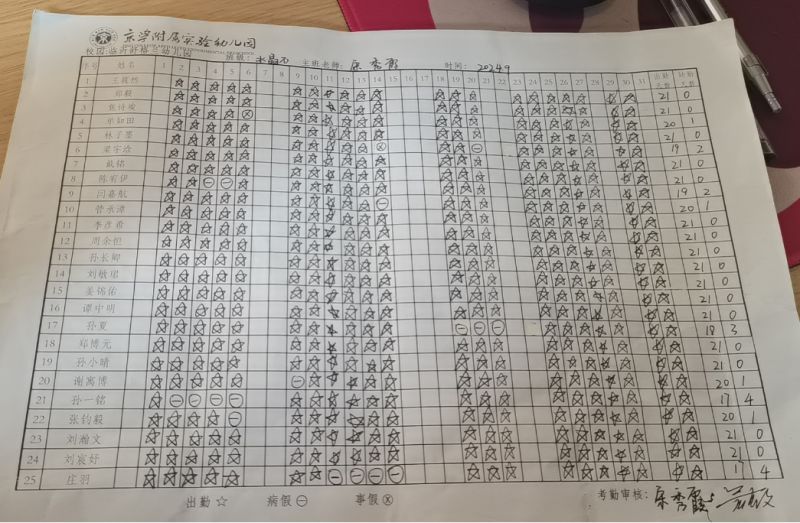 京学附属实验幼儿园
校园:临沂舒格兰幼儿园 班级: 水晶石 主班老师: 时间: 2024.9
序号 姓名 1 2 3 4 5 6 7 8 9 10 11 12 13 14 15 16 17 18 19 20 21 22 23 24 25 26 27 28 29 30 31 出勤天数 缺勤天数
1 21 0
2 郑毅 21 0
3 焦诗琬 ⊗ 20 1
4 牟如田 21 0
5 林子墨 ⊗ ⊖ 19 2
6 梁宇涂 21 0
7 21 0
8 陈宥伊 ⊖ ⊖ 19 2
9 闫嘉航 ⊖ 20 1
10 管承漳 21 0
11 李彦希 21 0
12 周余恒 21 0
13 孙长卿 21 0
14 刘敏珺 21 0
15 姜锦佑 21 0
16 谭中明 21 0
17 孙夏 ⊖ ⊖ ⊖ 18 3
18 郑博元 21 0
19 孙小晴 21 0
20 谢寓博 ⊖ 20 1
21 孙一铭 ⊖ ⊖ ⊖ ⊖ 17 4
22 张钧毅 ⊖ 20 1
23 刘瀚文 21 0
24 刘宸妤 21 0
25 庄羽 ⊖ ⊖ ⊖ ⊖ 4
出勤☆ 病假⊖ 事假⊗ 考勤审核: